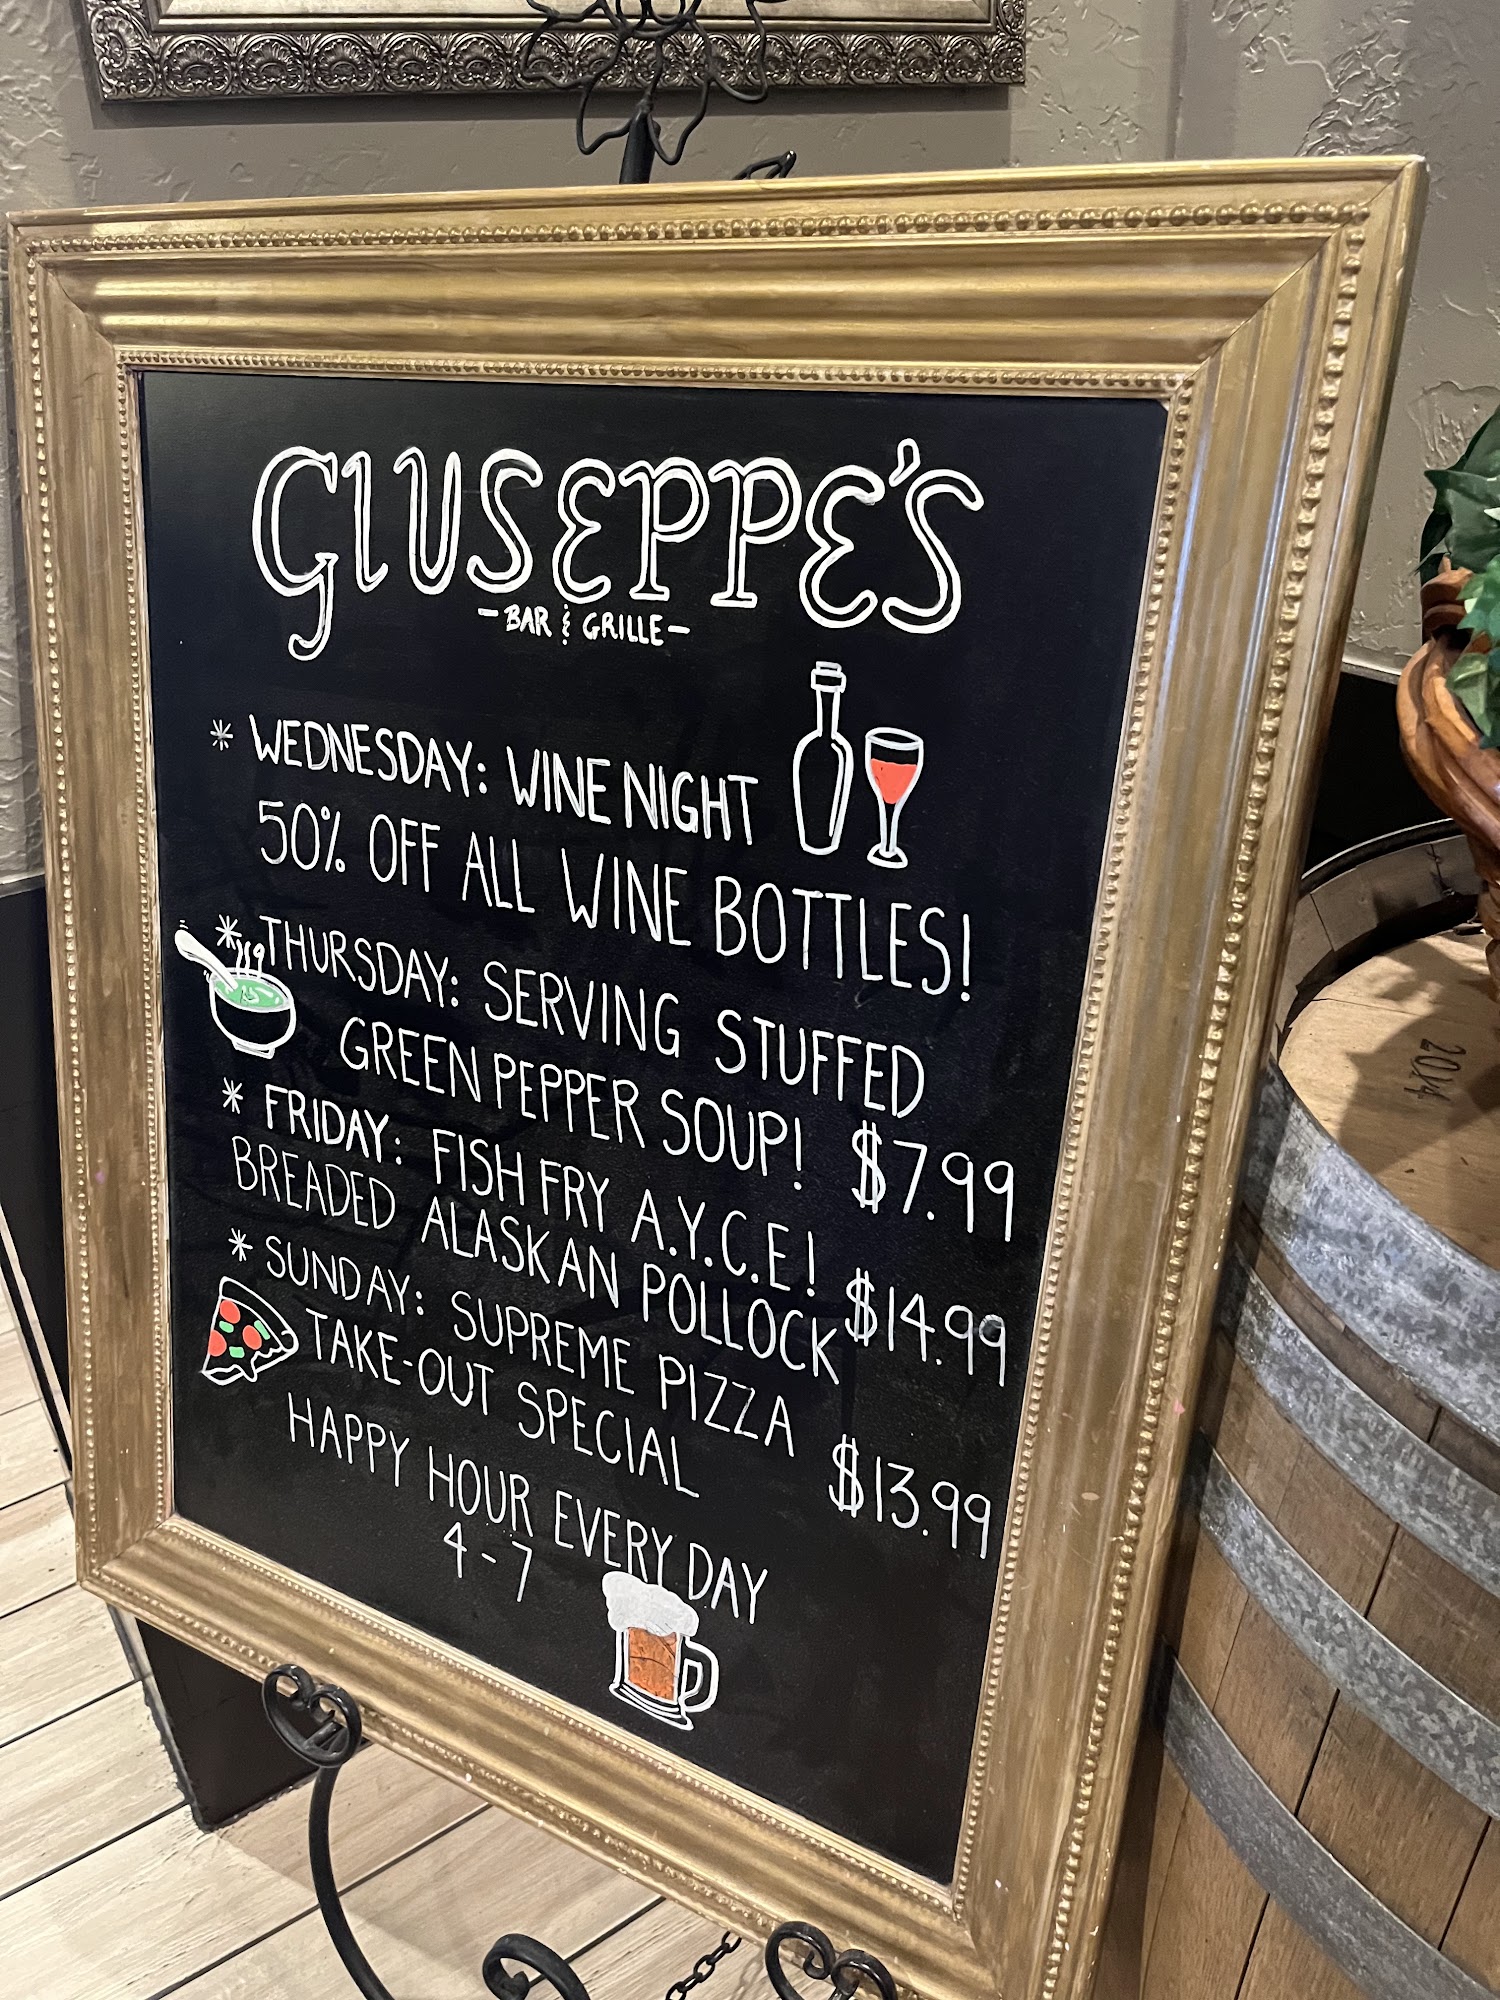 GIUSEPPE'S
- BAR & GRILLE -
* WEDNESDAY: WINE NIGHT
50% OFF ALL WINE BOTTLES!
* THURSDAY: SERVING STUFFED
GREEN PEPPER SOUP! $7.99
* FRIDAY: FISH FRY A.Y.C.E!
BREADED ALASKAN POLLOCK $14.99
* SUNDAY: SUPREME PIZZA
TAKE-OUT SPECIAL $13.99
HAPPY HOUR EVERY DAY
4-7
2014